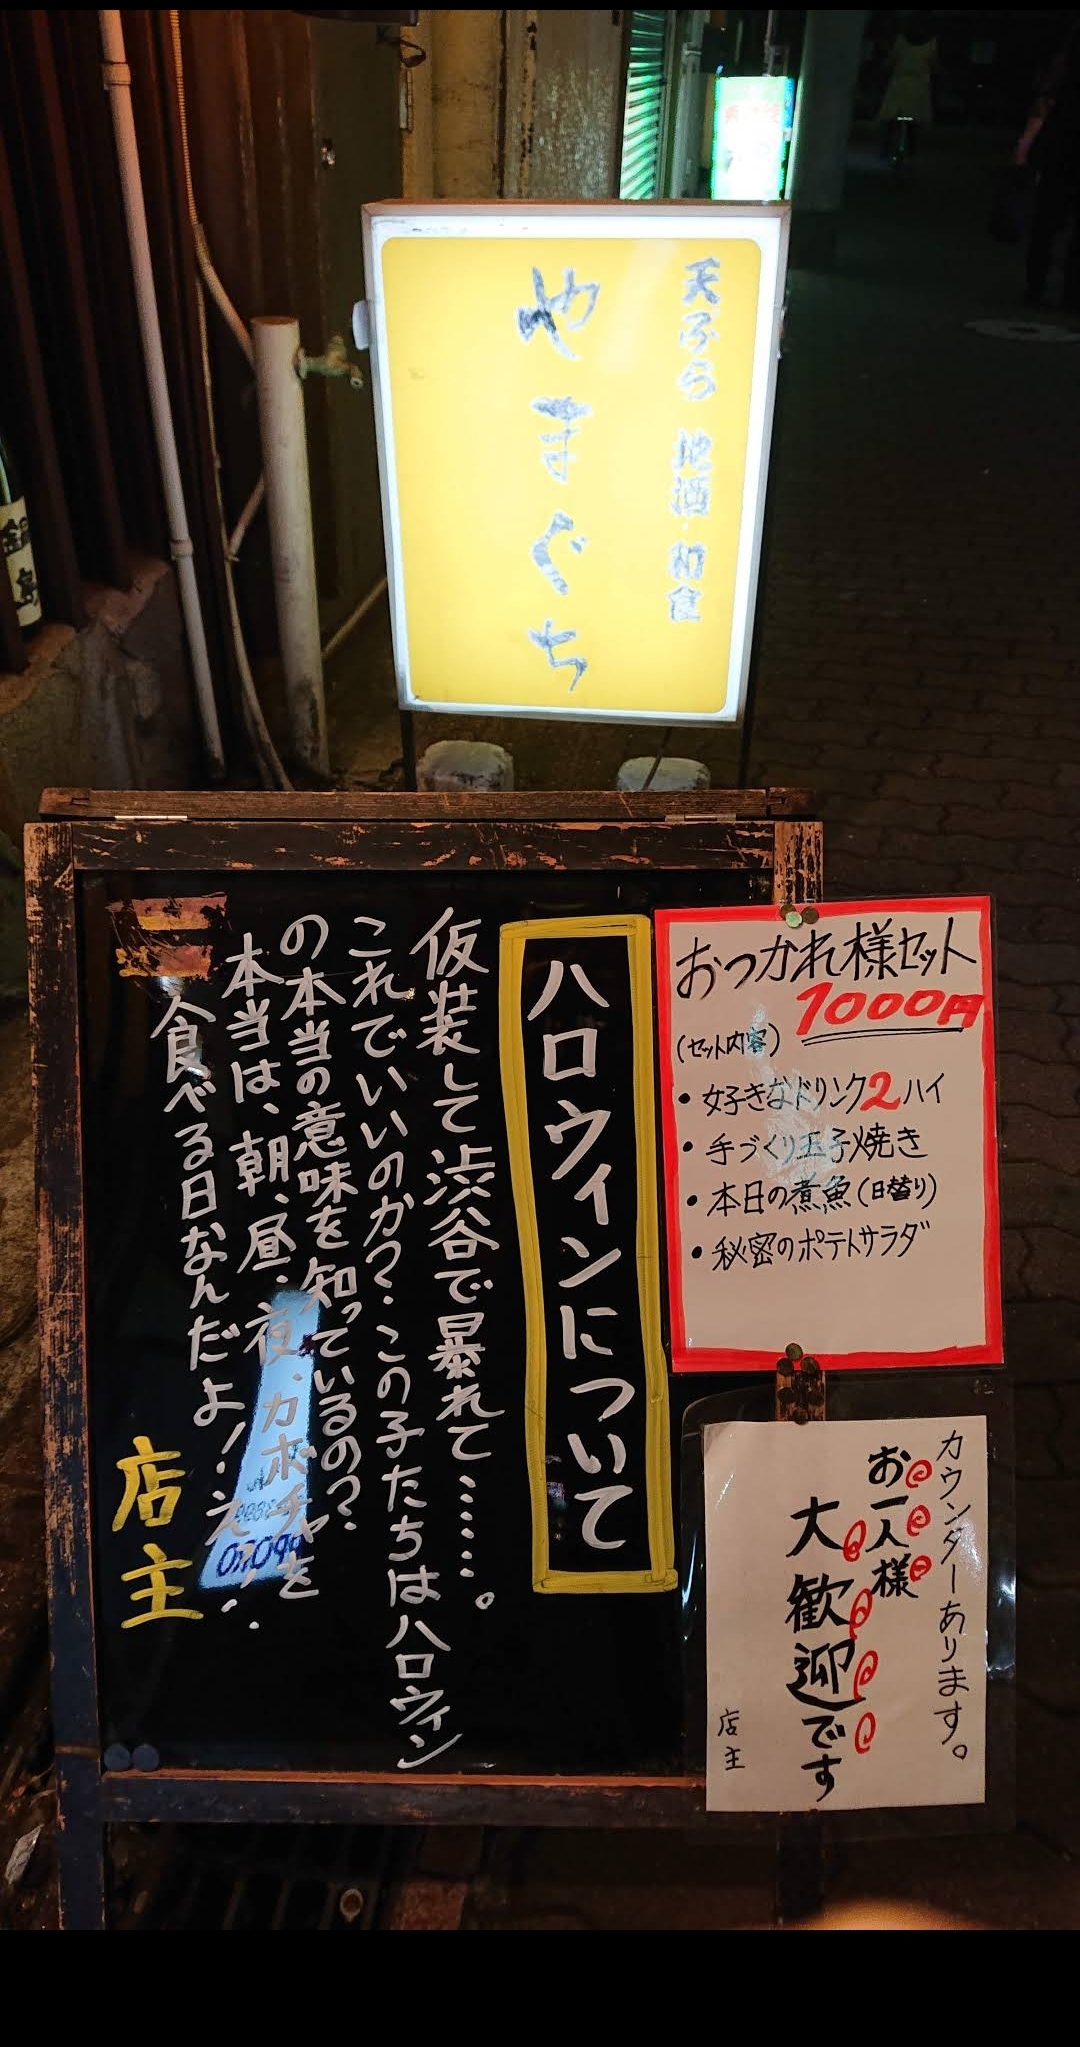 天ぷら 地酒・和食
やまぐち
ハロウィンについて
仮装して渋谷で暴れて……。
これでいいのか?この子たちはハロウィン
の本当の意味を知っているの?
本当は、朝、昼、夜、カボチャを
食べる日なんだよ!
店主
おつかれ様セット
1000円
(セット内容)
・好きなドリンク2ハイ
・手づくり玉子焼き
・本日の煮魚(日替り)
・秘密のポテトサラダ
カウンターあります。
お一人様
大歓迎です
店主